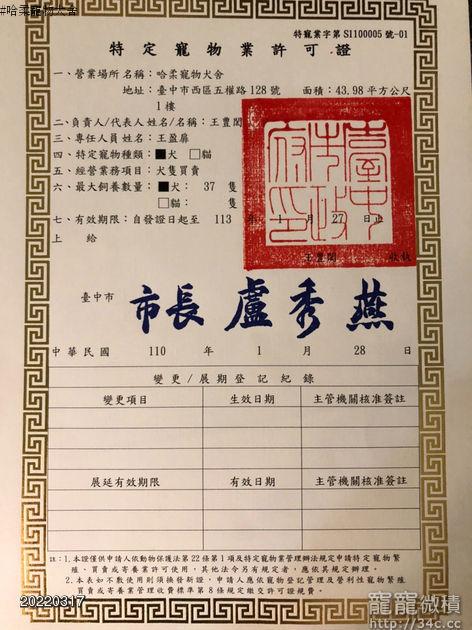 #哈柔寵物犬舍
特寵業字第 SI100005 號-01
特定寵物業許可證
一、營業場所名稱：哈柔寵物犬舍
地址：臺中市西區五權路128號 面積：43.98 平方公尺
1樓
二、負責人/代表人姓名/名稱：王豊閎
三、專任人員姓名：王盈
四、特定寵物種類：■犬 □貓
五、經營業務項目：犬隻買賣
六、最大飼養數量：■犬： 37 隻
□貓： 隻
七、有效期限：自發證日起至 113 年 1 月 27 日止
上 給
王豊閎 收執
臺中市政府印
臺中市 市長 盧秀燕
中華民國 110 年 1 月 28 日
變更/展期登記紀錄
變更項目 生效日期 主管機關核准簽註
展延有效期限 有效日期 主管機關核准簽註
註：1.本證僅供申請人依動物保護法第22條第1項及特定寵物業管理辦法規定申請特定寵物繁
殖、買賣或寄養業許可使用，其他法令另有規定者，應依其規定辦理。
2.本表如不敷使用則須換發新證，申請人應依寵物登記管理及營利性寵物繁殖
買賣或寄養業管理收費標準第8條規定繳交許可證規費。
20220317
寵寵微積
http://34c.cc